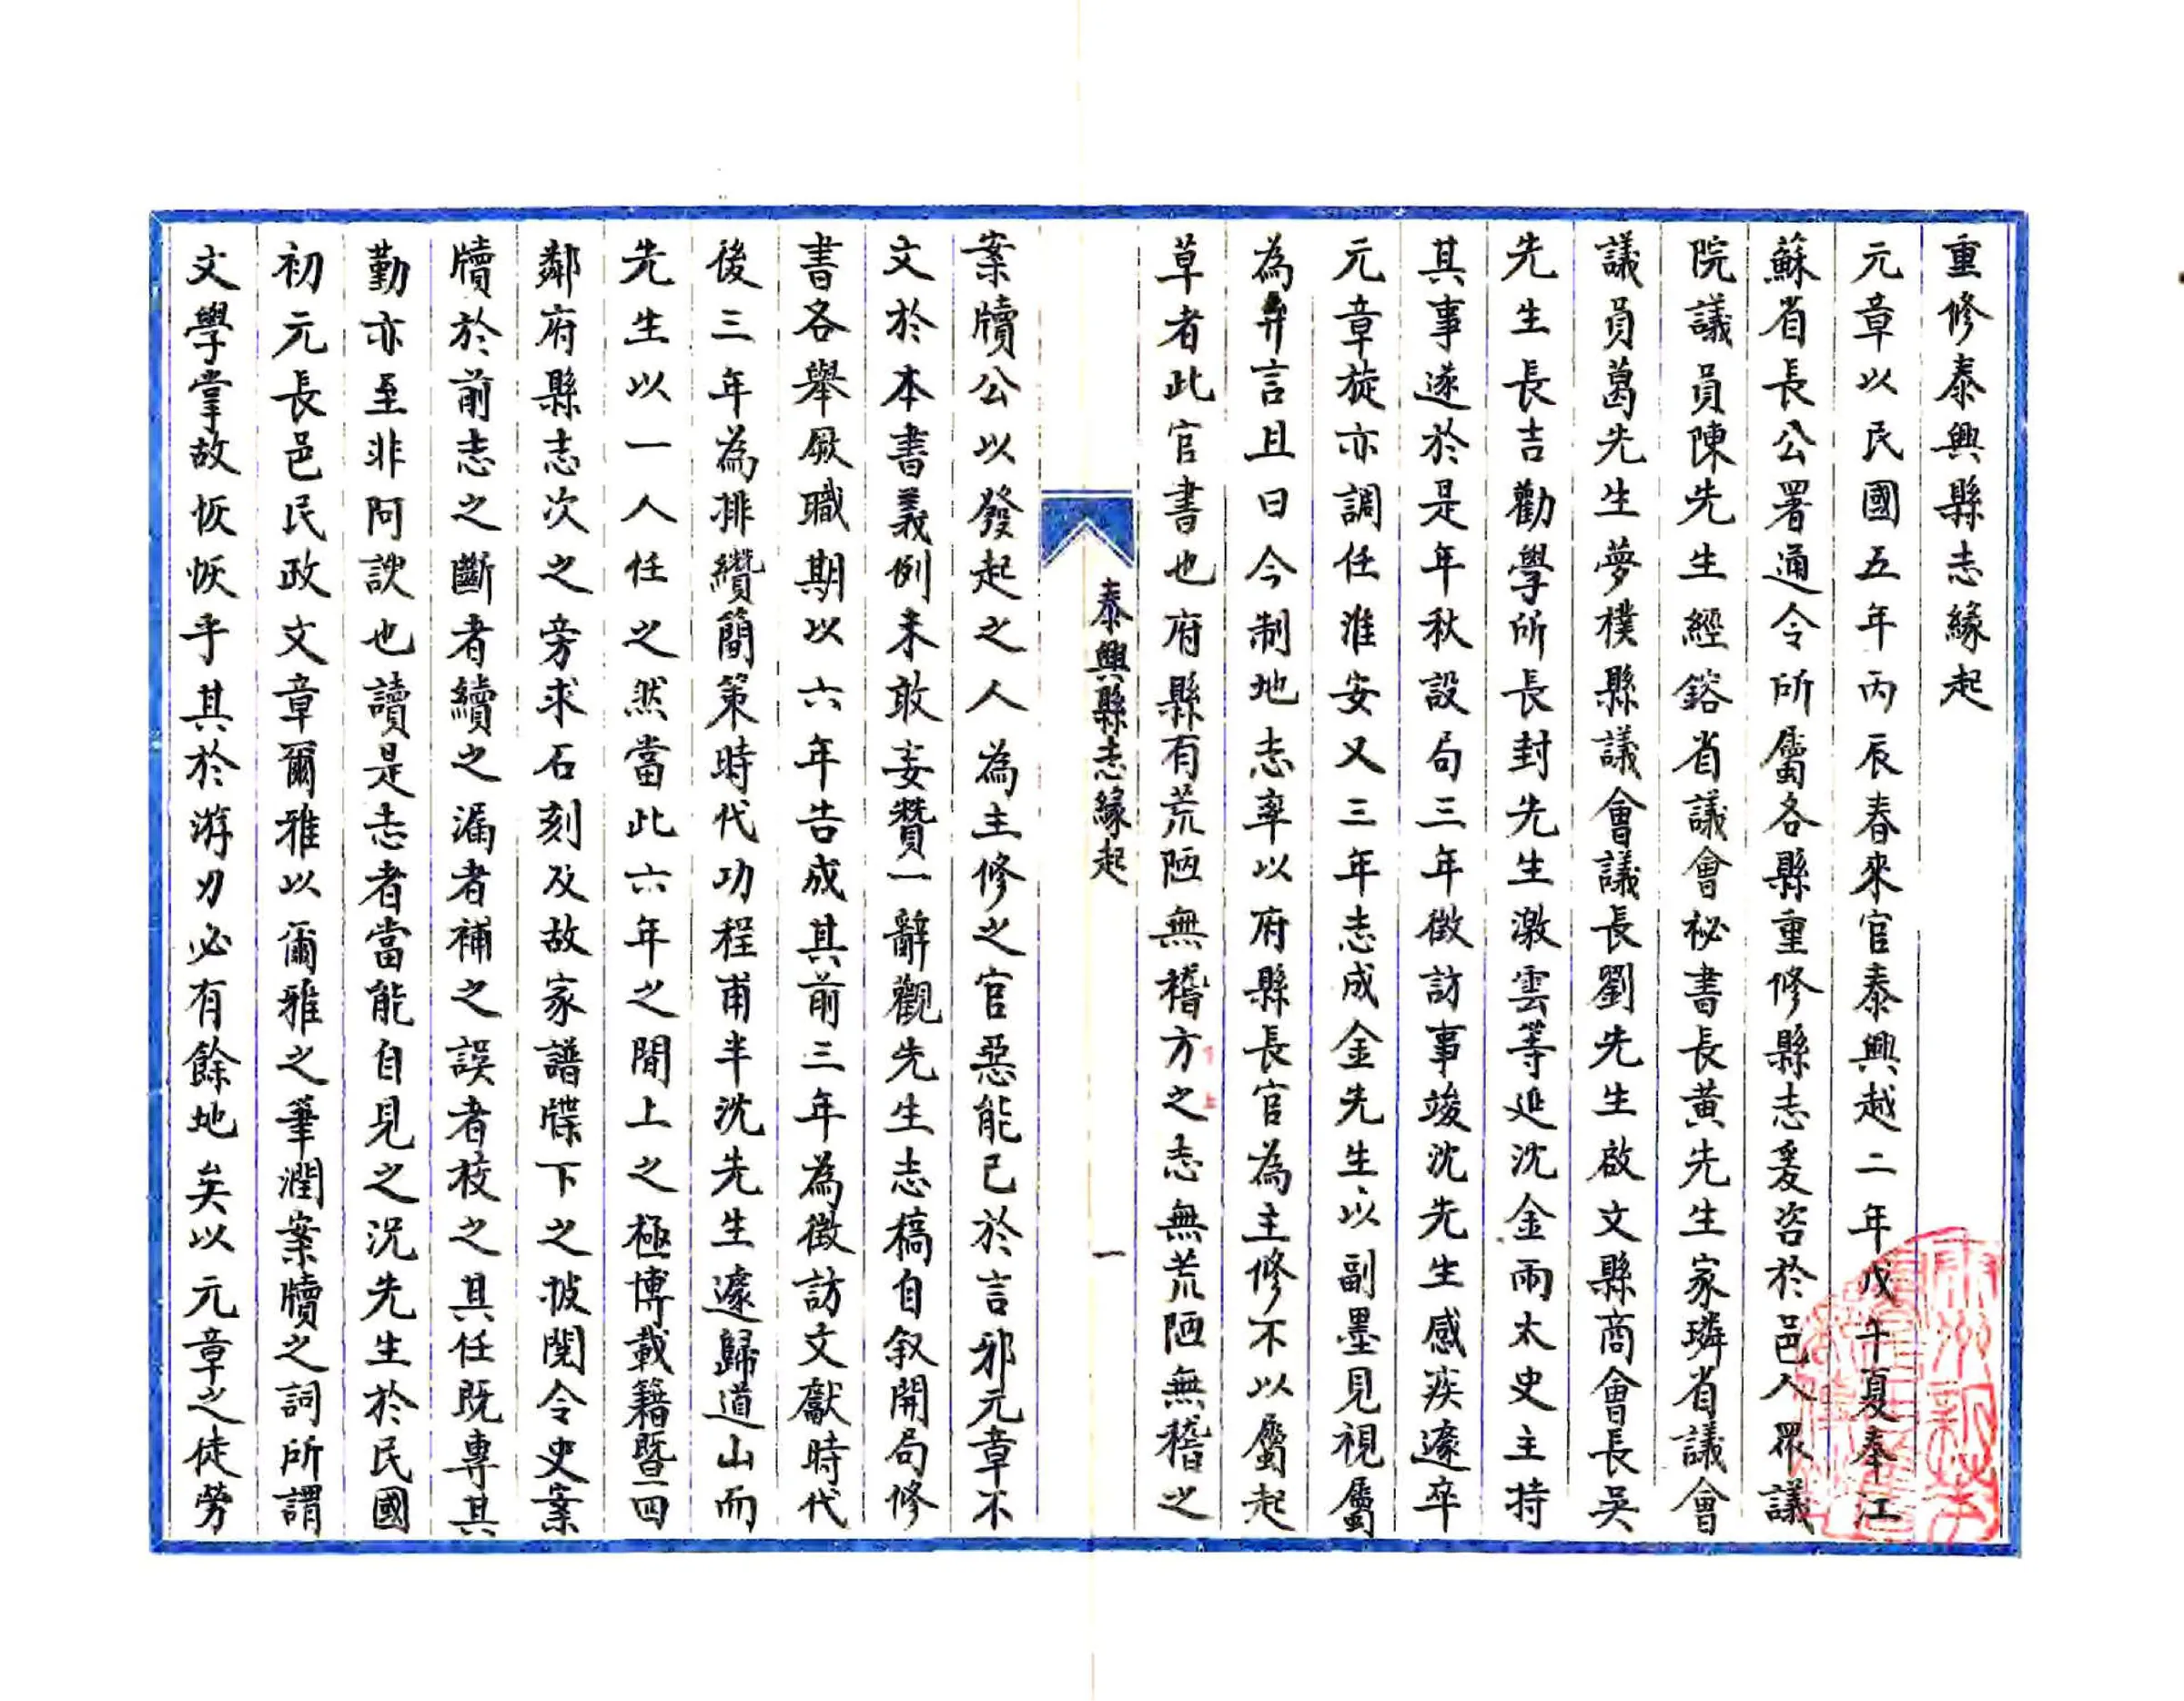 重修泰興縣志緣起
元章以民國五年丙辰春來官泰興越二年戊午夏奉江
蘇省長公署通令所屬各縣重修縣志爰咨於邑人眾議
院議員陳先生經鎔省議會祕書長黃先生家璘省議會
議員葛先生夢樸縣議會議長劉先生啟文縣商會長吳
先生長吉勸學所長封先生激雲等延沈金兩太史主持
其事遂於是年秋設局三年徵訪事竣沈先生感疾遽卒
元章旋亦調任淮安又三年志成金先生以副墨見視屬
為弁言且曰今制地志率以府縣長官為主修不以屬起
草者此官書也府縣有荒陋無稽方之志無荒陋無稽之
泰興縣志緣起
一
案牘公以發起之人為主修之官惡能已於言邪元章不
文於本書義例未敢妄贊一辭觀先生志稿自敘開局修
書各舉厥職期以六年告成其前三年為徵訪文獻時代
後三年為排纘簡策時代功程甫半沈先生遽歸道山而
先生以一人任之然當此六年之間上之極博載籍暨四
鄰府縣志次之旁求石刻及故家譜牒下之披閱令史案
牘於前志之斷者續之漏者補之誤者校之其任既專其
勤亦至非阿諛也讀是志者當能自見之況先生於民國
初元長邑民政文章爾雅以爾雅之筆潤案牘之詞所謂
文學掌故恢恢乎其於游刃必有餘地矣以元章之徒勞